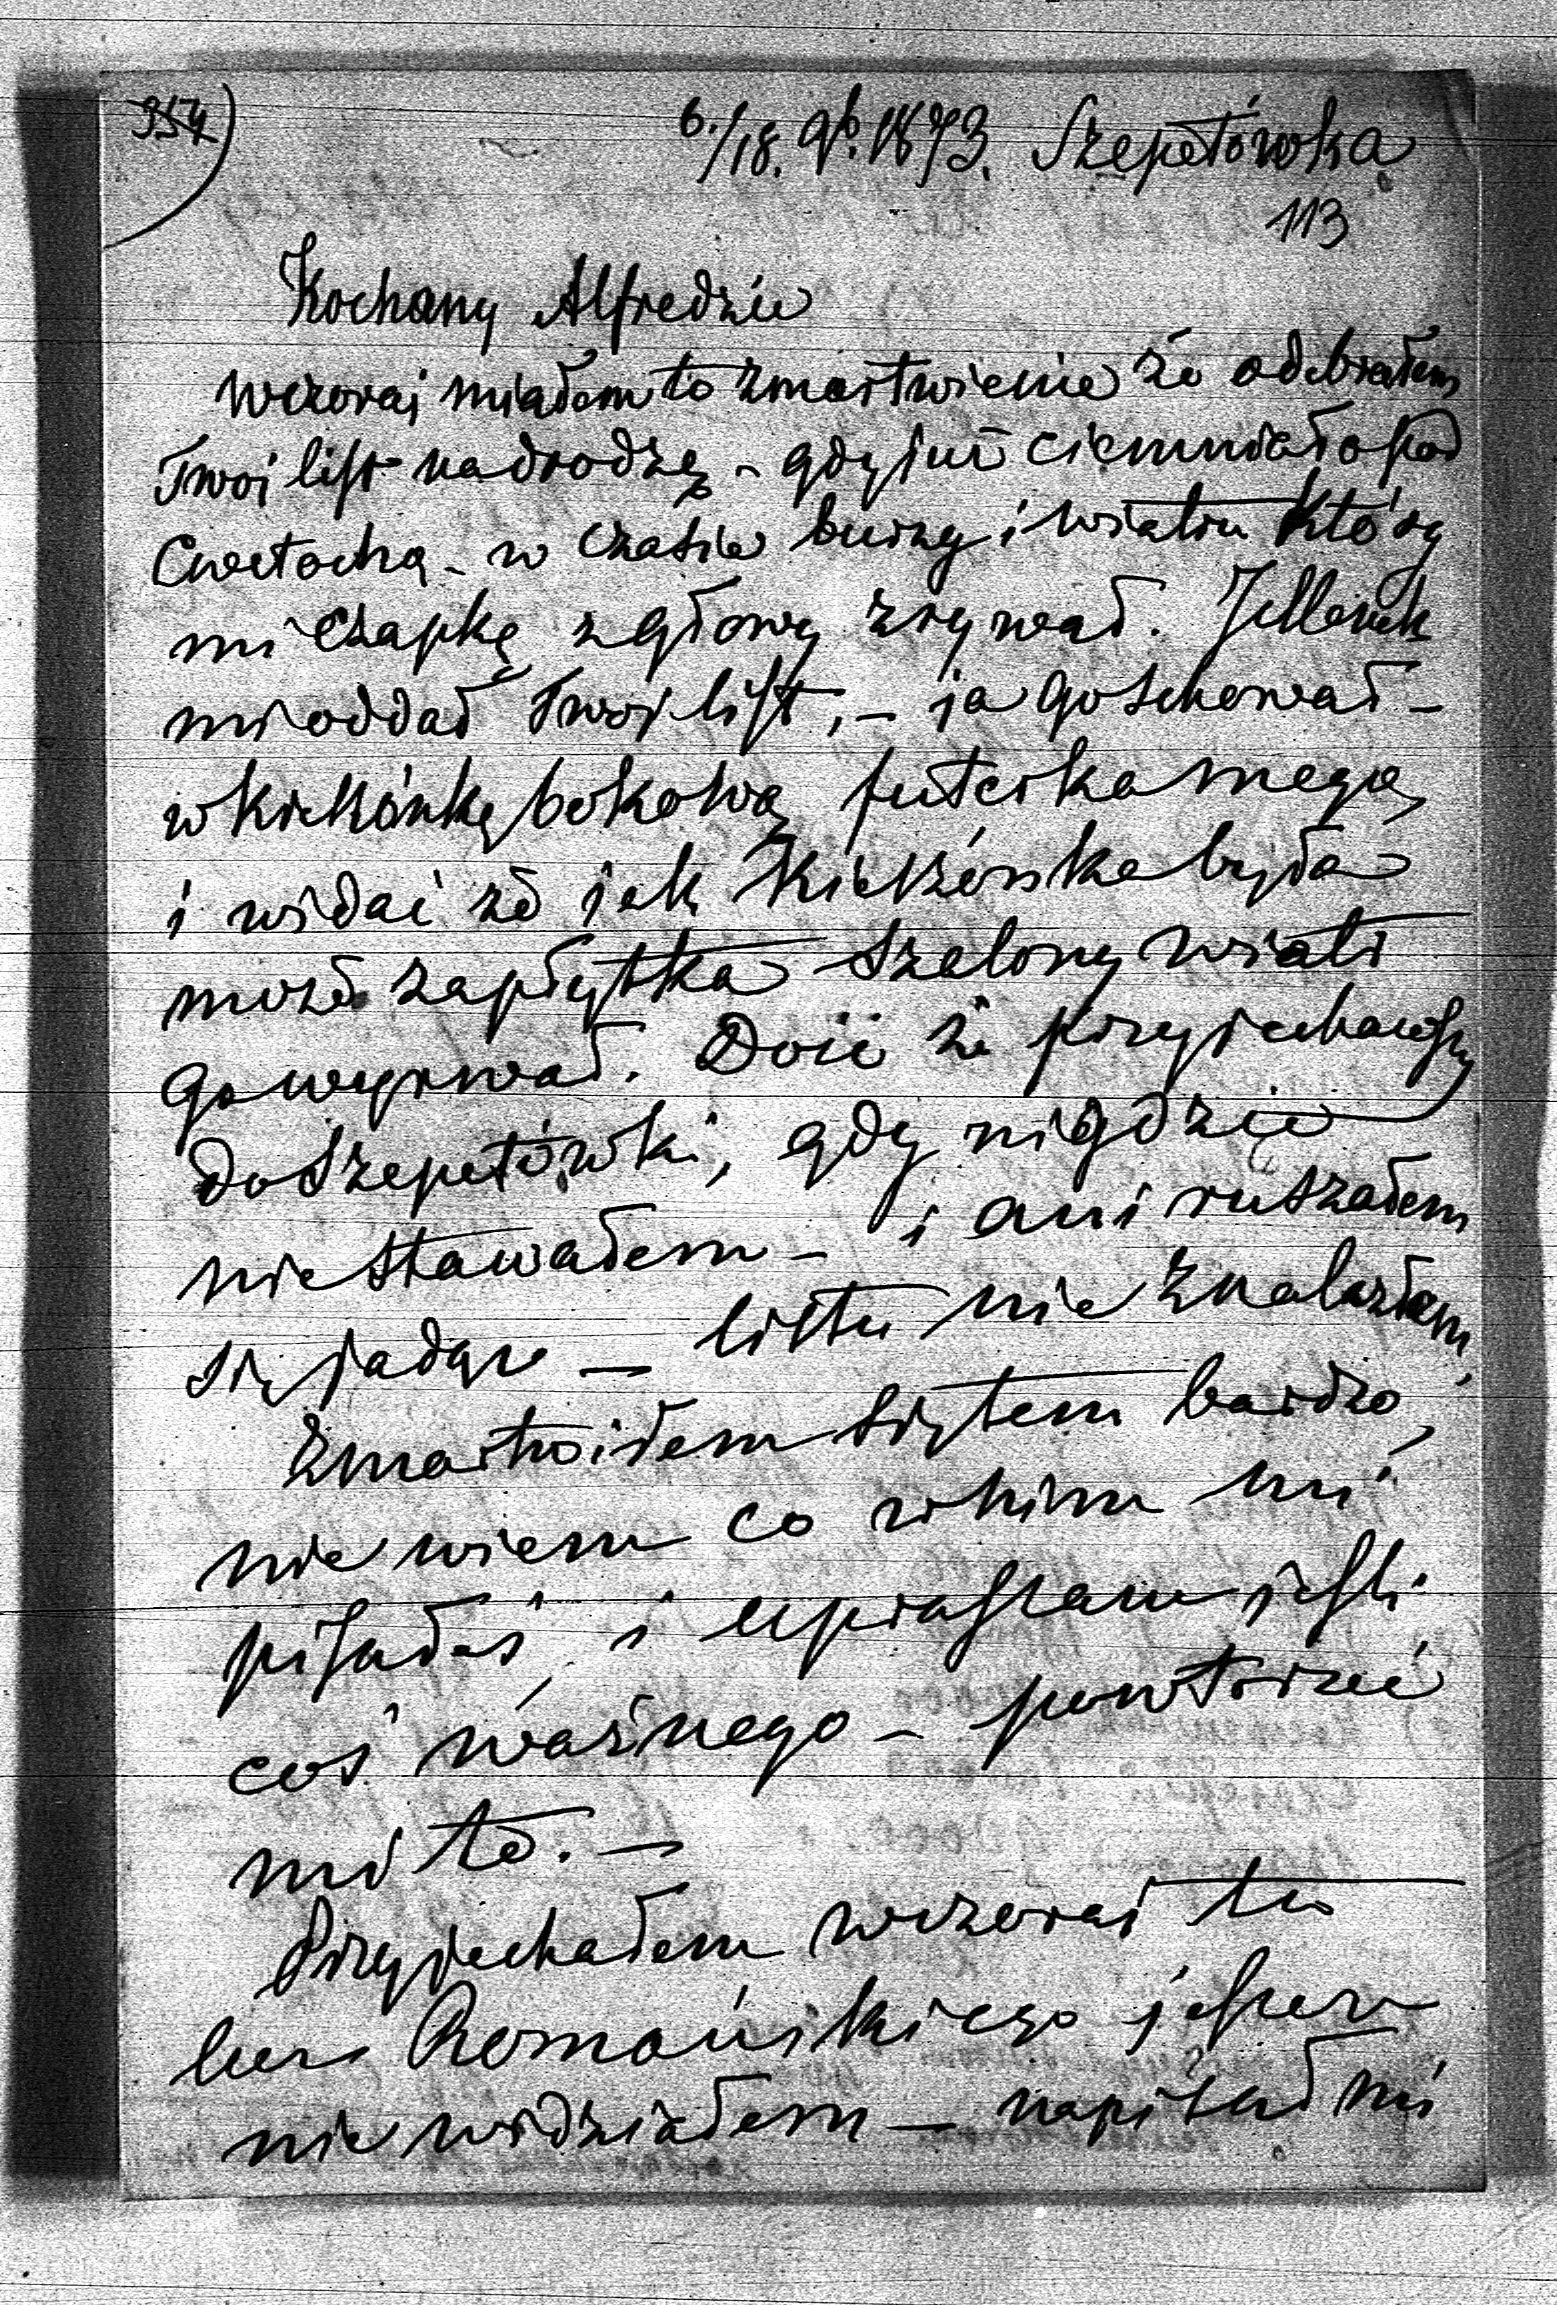 354)
6./18. 9b. 1873. Szepetówka
113
Kochany Alfredzie
Wczoraj miałem to zmartwienie że odebrałem
Twoj list na drodzę - gdy już ciemniało pod
Cwetochą - w czasie burzy i wiatru który
mi czapkę z głowy zrywał. Jellinek
mi oddał Twoj list, - ja go schował -
w kieszónkę bokową futerka mego,
i widać że jak kieszónka była
może zapłytka szelony wiatr
go wyrwał. Dość że przyjechawszy
do Szepetówki, gdy nigdzie
nie stawałem - i ani ruszałem
się jadąc - listu nie znalazłem,
Zmartwiłem się tem bardzo,
nie wiem co w nim mi
pisałeś i upraszam jeśli
coś ważnego - powtórzeć
mi to. -
Przyjechałem wczoraj tu
lecz Romańskiego jeszcze
nie widziałem - napisał mi